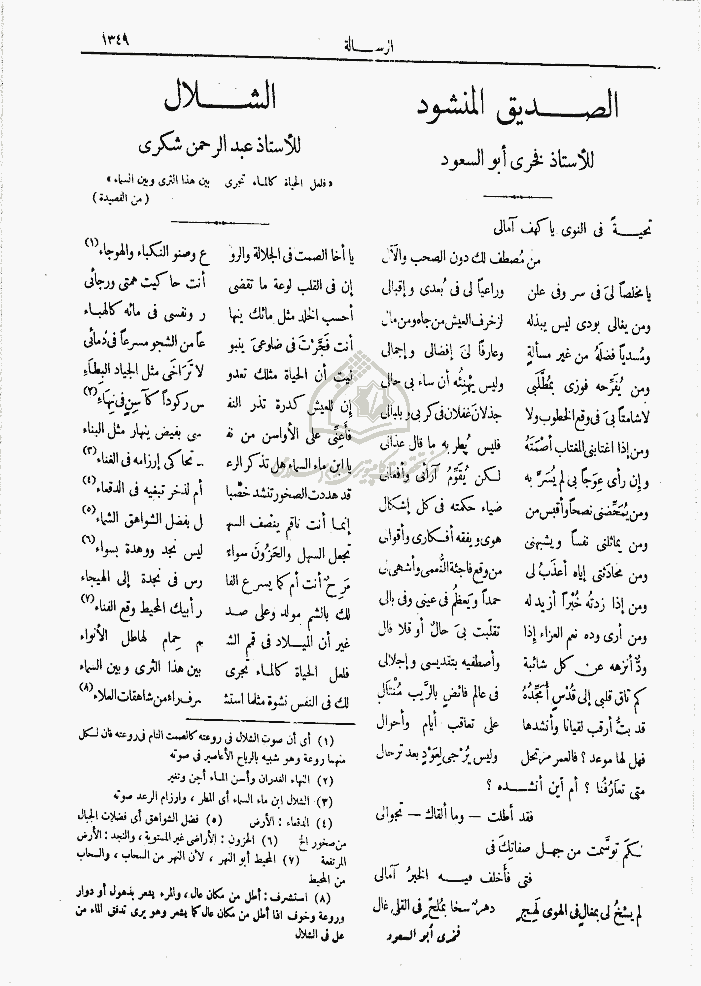 ١٣٤٩
الرسالة
الصديق المنشود
للأستاذ فخرى أبو السعود
تحية فى النوى يا كهف آمالى
من مُصطف لك دون الصحب والآل
يا مخلصاً لىَ فى سر وفى علن وراعياً لى فى بُعدى و إقبالى
ومن يغالى بودى ليس يبذله لزخرف العيش من جاه ومن مال
ومُسدياً فضلَهُ من غير مسألةٍ وعارفاً لىَ إفضالى وإجمالى
ومن يُفَرِّحه فوزى بمُطَّلَبى وليس يَهْنِئُه أن ساء بى حالى
لا شامتاً بىَ فى وقع الخطوب ولا جذلان غفلان فى كربى وبلبالى
ومن إذا اغتابنى المغتاب أصْمَتَهُ فليس يُطربه ما قال عذالى
و إن رأى عِوَجاً بى لم يُسَرَّ به لكن يُقَوِّمُ آرائى وأفعالى
ومن يُمَحِّضنى نصحاً وأقبس من ضياء حكمته فى كل إشكال
ومن يماثلنى نفساً ويشبهنى هوى ويفقه أفكارى وأقوالى
ومن محادثتى إياه أعذبُ لى من وقع فاجئة النُّعمى وأشهى لى
ومن إذا زدتُه خُبْراً أزيد له حمداً ويَعظُم فى عينى وفى بالى
ومن أرى وده نعم العزاء إذا تقلّبت بىَ حالٌ أو قلا قال
ودٌّ أنزهه عن كل شائبة وأصطفيه بتقديسى و إجلالى
كم تاق قلبى إلى قُدْسٍ أمَجِّدُهُ فى عالم فائض بالرَّيب مُنثال
قد بتُّ أرقب لقيانا وأنشدها على تعاقب أيام وأحوال
فهل لها موعد ؟ فالعمر مرتحل وليس يُرْجى لِعَوْدٍ بعد ترحال
متى تعارُفنا ؟ أم أين أنشده ؟
فقد أطلت – وما ألقاك – تجوالى
نكم توسَّمت من جهل صفاتِك فى
فتى فأخلف فيه الخُبرُ آمالى
لم يَسْخُ لى بمغال فى الهوى لَهِج دهرٌ سخا بمُلحّ فى القلى غال
فخرى أبو السعود
الشلال
للأستاذ عبد الرحمن شكرى
« فلعل الحياة كالماء تجرى بين هذا الثرى وبين السماء »
( من القصيدة )
يا أخا الصمت فى الجلالة والرو ع وصنو النكباء والهوجاء (١)
إن فى القلب لوعة ما تقضى أنت حاكيت همتى ورجائى
أحسب الخلد مثل مائك ينها ر ونفسى فى مائه كالهباء
أنت فَجَّرْتَ فى ضلوعىَ ينبو عاً من الشجو مسرعاً فى دمائى
ليت أن الحياة مثلك تعدو لا تَرَاخَى مثل الجياد البِطَاءِ
إن للعيش كدرة تذر النفـ س ركوداً كآسِنٍ فى نِهَاء (٢)
فأعنّى على الأواسن من نفـ سى بفيض ينهار مثل البناء
يا ابن ماء السماء هل تذكر الرعـ د تحاكى إرزامه فى الفناء (٣)
قد هددت الصخور تنشد خصْباً أم لذخر تبغيه فى الدقعاء (٤)
إنما أنت ناقم ينصف السهـ ل بفضل الشواهق الشماء (٥)
تجعل السهل والحَزُون سواء ليس نجد ووهدة بسواء (٦)
مَرِحٌ أنت أم كما يسرع الفا رس فى نجدة إلى الهيجاء
لك باليم مولد وعلى صد ر أبيك المحيط وقع الفناء (٧)
غير أن الميلاد فى قمم الشـ م حِمام لهاطل الأنواء
فلعل الحياة كالماء تجرى بين هذا الثرى وبين السماء
لك فى النفس نشوة مثلما استشـ رف راء من شاهقات العلاء (٨)
(١) أى أن صوت الشلال فى روعته كالصمت التام فى روعته فان لكل
منهما روعة وهو شبيه بالرياح الأعاصير فى صوته
(٢) النهاء الغدران وأسن الماء أجن وتغير
(٣) الشلال ابن ماء السماء أى المطر ، وارزام الرعد صوته
(٤) الدقعاء : الأرض (٥) فضل الشواهق أى فضلات الجبال
من صخور الخ (٦) الحزون : الأراضى غير المستوية ، والنجد : الأرض
المرتفعة (٧) المحيط أبو النهر ، لأن النهر من السحاب ، والسحاب
من المحيط
(٨) استشرف : أطل من مكان عال ، والمرء يشعر بذهول أو دوار
وروعة وخوف اذا أطل من مكان عال كما يشعر وهو يرى تدفق الماء من
عل فى الشلال